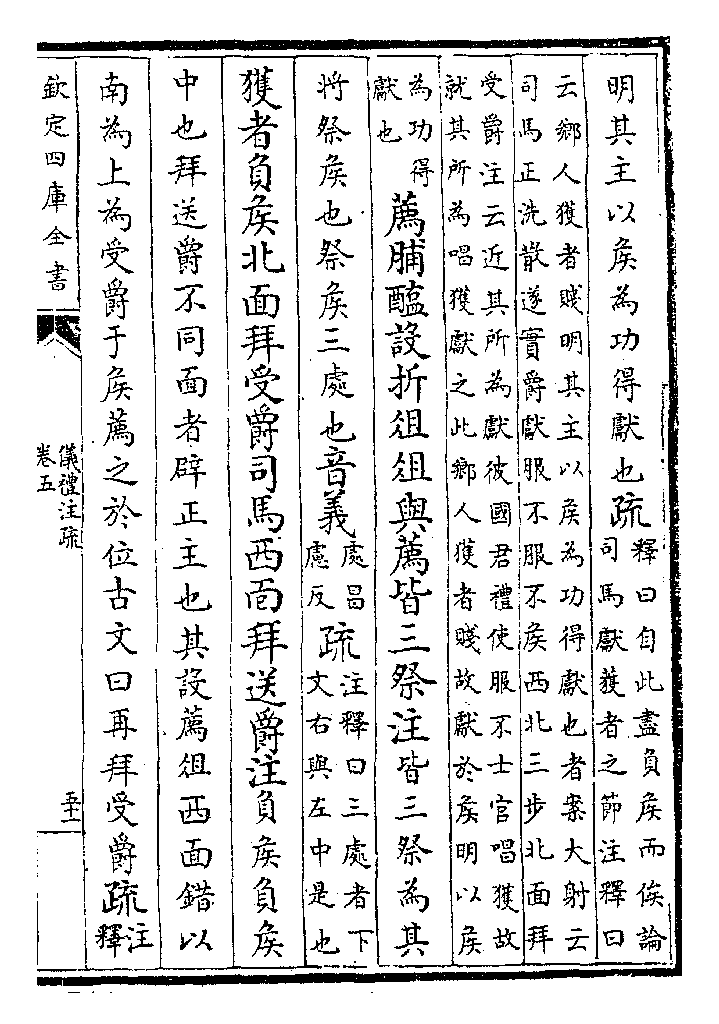 明其主以矦為功得獻也疏
釋曰自此盡負矦而俟論
司馬獻獲者之節注釋曰
云鄉人獲者賤明其主以矦為功得獻也者案大射云
司馬正洗散遂實爵獻服不服不矦西北三步北面拜
受爵注云近其所為獻彼國君禮使服不士官唱獲故
就其所為唱獲獻之此鄉人獲者賤故獻於矦明以矦
為功得
獻也
薦脯醢設折俎俎與薦皆三祭注皆三祭為其
將祭矦也祭矦三處也音義
處昌
慮反
疏
注釋曰三處者下
文右與左中是也
獲者負矦北面拜受爵司馬西面拜送爵注負矦負矦
中也拜送爵不同面者辟正主也其設薦俎西面錯以
南為上為受爵于矦薦之於位古文曰再拜受爵疏
注
釋
欽定四庫全書
儀禮注疏
卷五
五十一